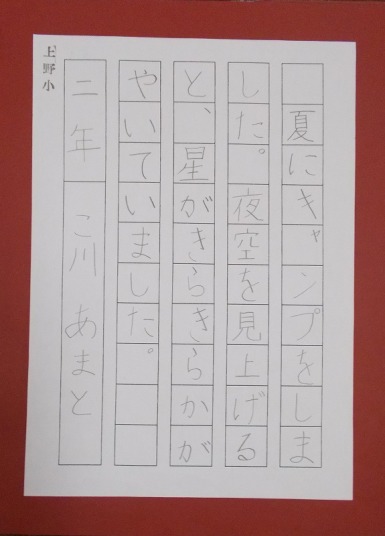 夏にキャンプをしま
した。夜空を見上げる
と、星がきらきらかが
やいていました。
二年 こ川 あまと
上野小